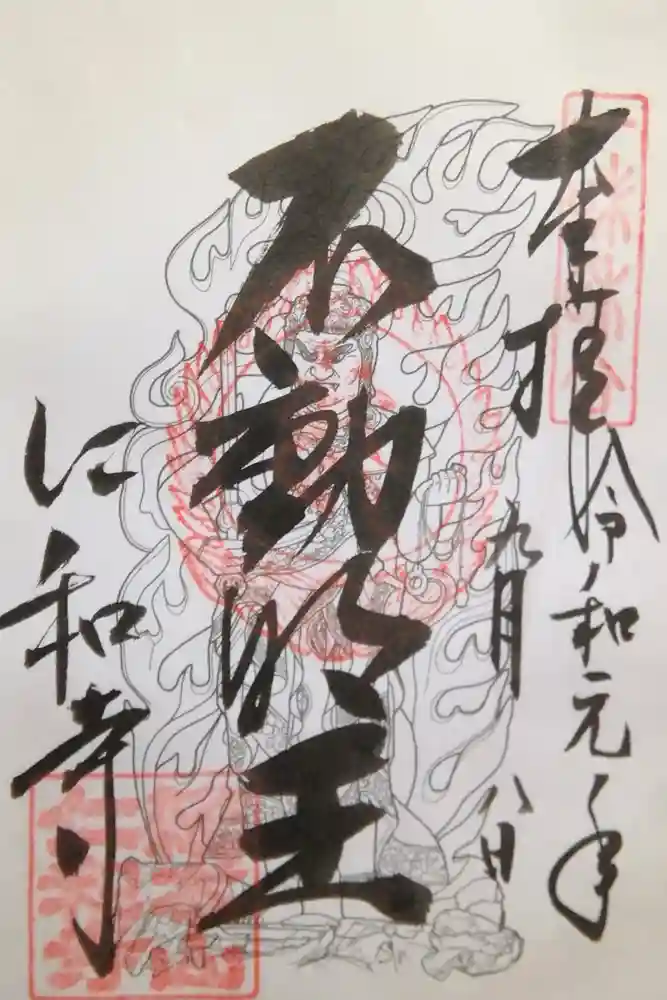 奉拝
令和元年
九月八日
不動明王
仁和寺